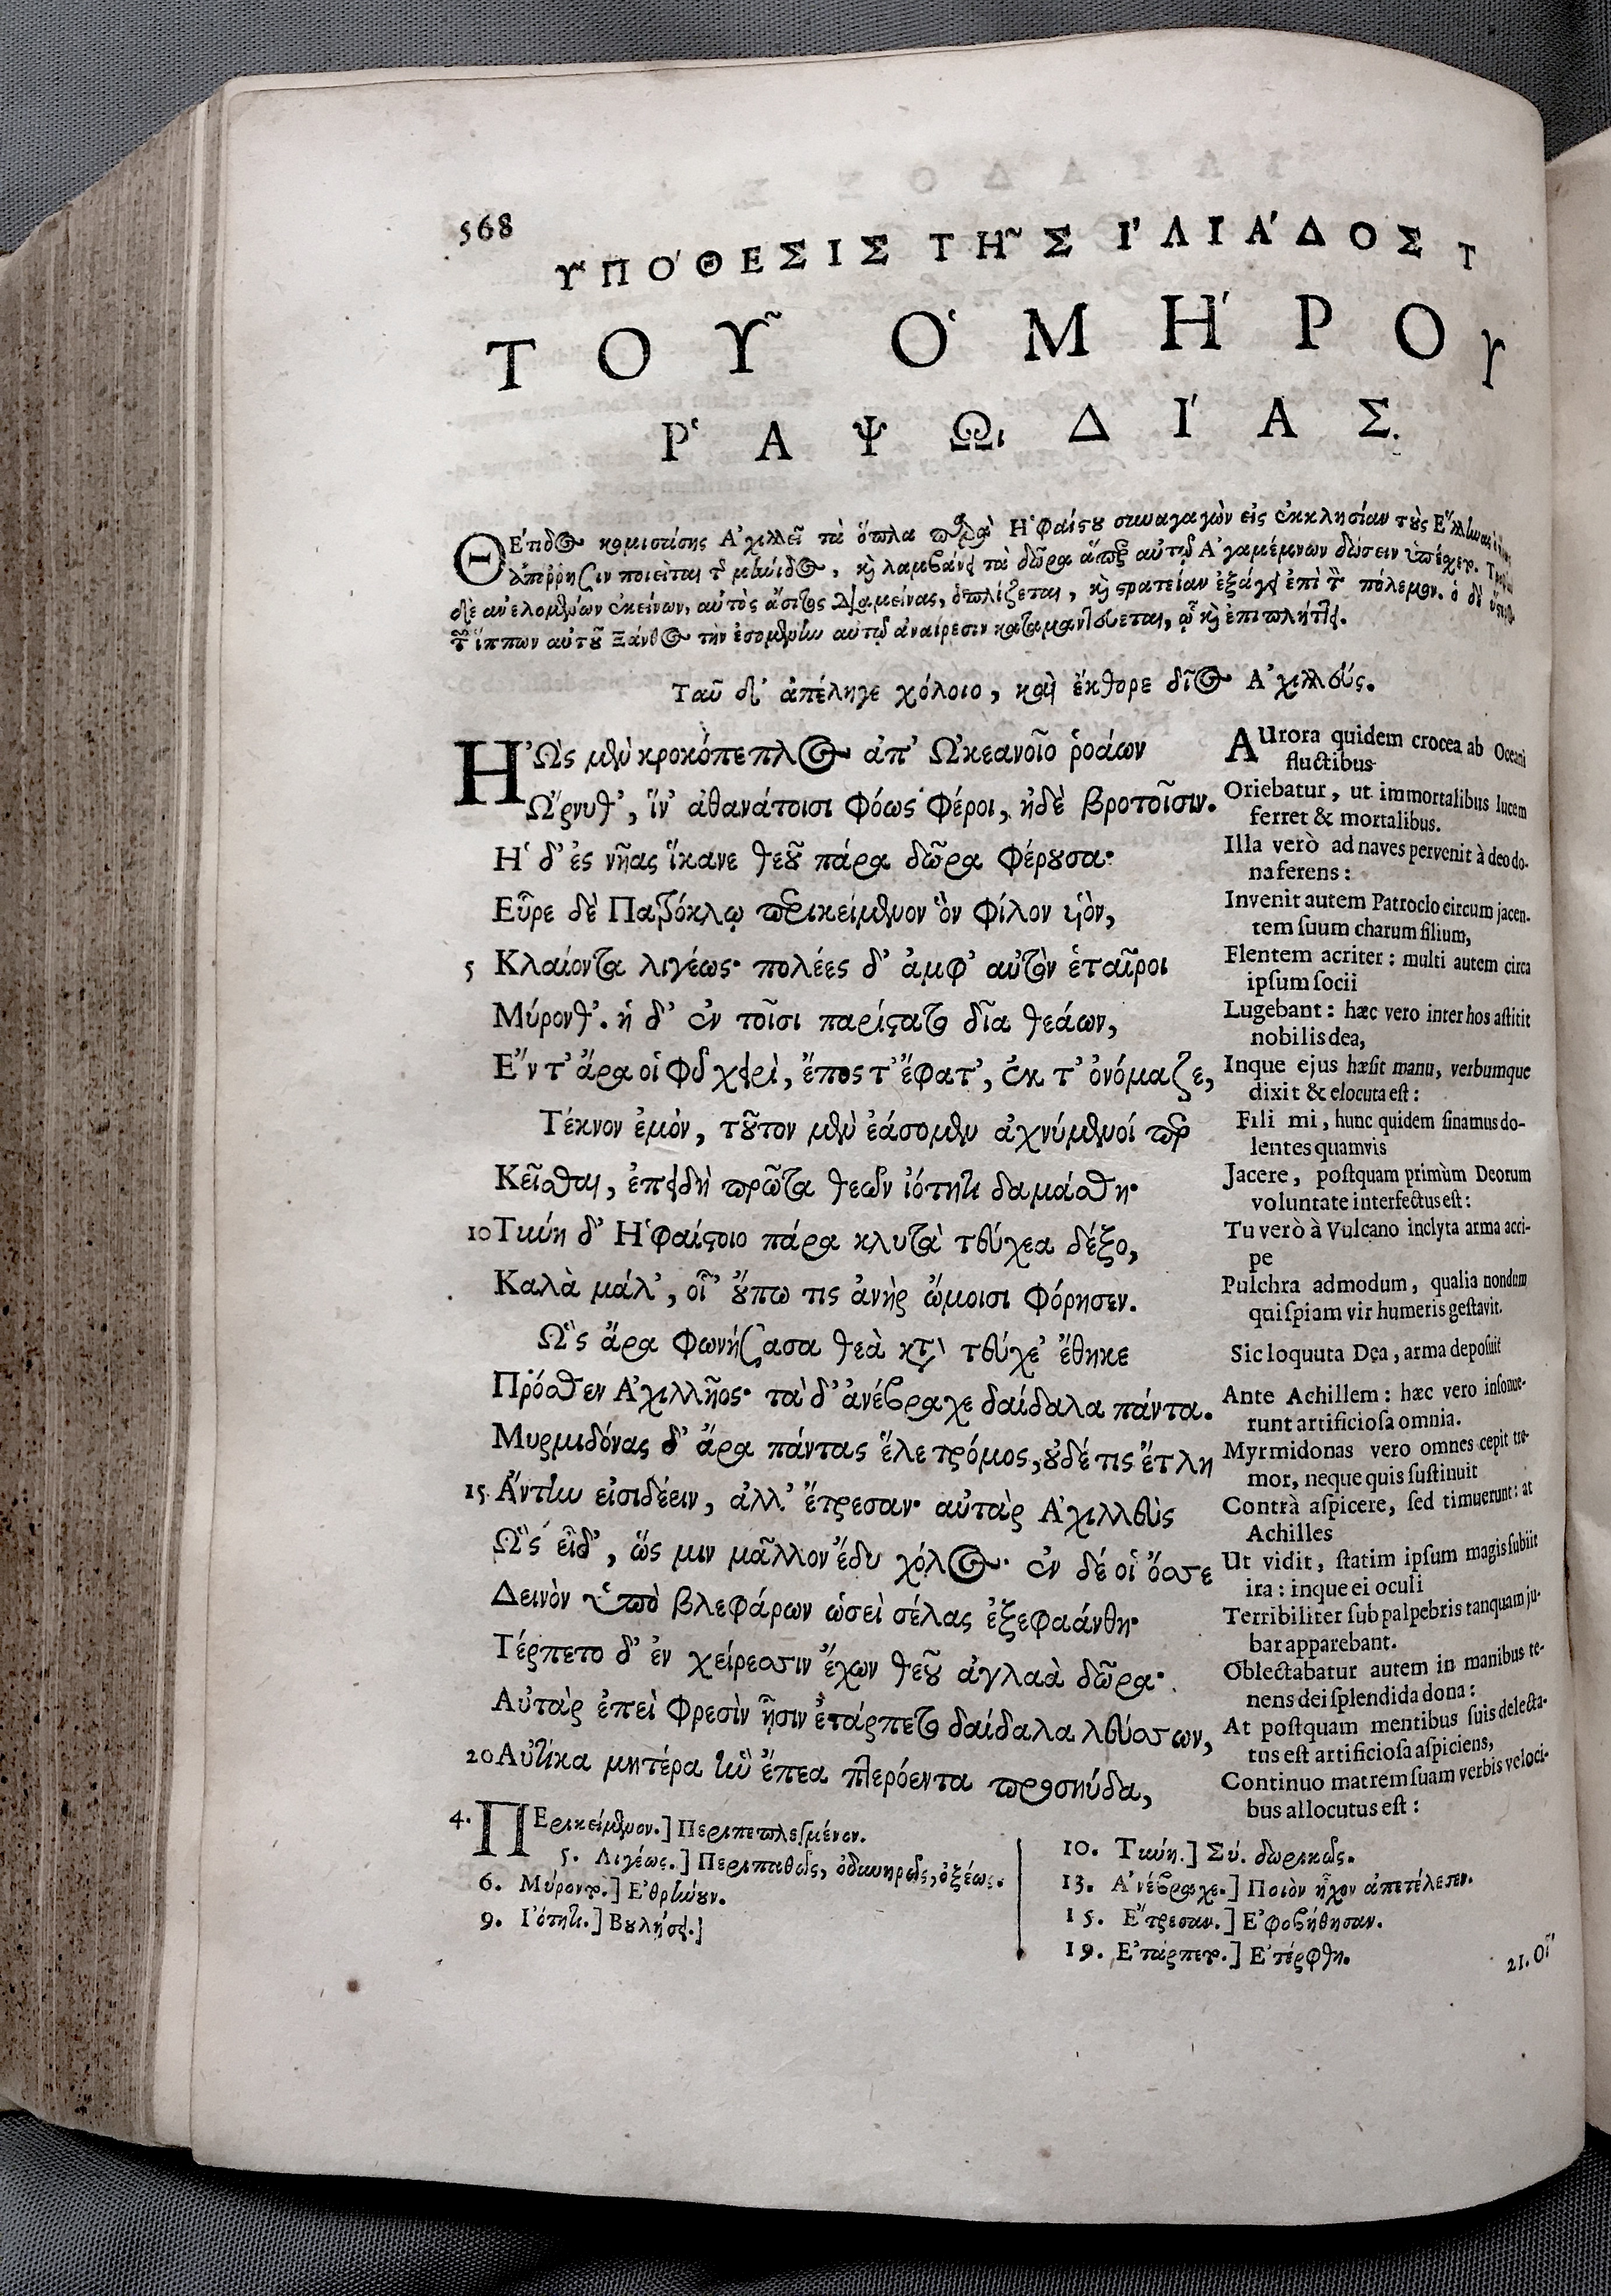 568
ΥΠΌΘΕΣΙΣ ΤΗ͂Σ ἸΛΙΆΔΟΣ Τ
ΤΟΥ͂ ὉΜΉΡΟΥ
ῬΑΨΩΙΔΊΑΣ.
ΘΕτιδος κομισάσης Ἀχιλλεῖ τὰ ὅπλα παρὰ Ἡφαίστου συναγαγὼν εἰς ἐκκλησίαν τοὺς
ἀπόρρησιν ποιεῖται τῆς μήνιδος, καὶ λαμβάνει τὰ δῶρα ἅπερ αὐτῷ Ἀγαμέμνων δώσειν ὑπέχετο.
δὲ ἀνελομένων ἐκείνων, αὐτὸς ἄσιτος διαμείνας, ὁπλίζεται, καὶ στρατείαν ἐξάγει ἐπὶ τὸν πόλεμον. ὁ δὲ
τῶν ἵππων αὐτοῦ Ξάνθος τὴν ἐσομένην αὐτῷ ἀναίρεσιν καταμαντεύεται, ᾧ καὶ ἐπιπλήττει.
Ταῦ δ' ἀπέληγε χόλοιο, καὶ ἔκθορε δῖος Ἀχιλλεύς.
ἨῺς μὲν κροκόπεπλος ἀπ' Ὠκεανοῖο ῥοάων
Ὤρνυθ', ἵν' ἀθανάτοισι φόως φέροι, ἠδὲ βροτοῖσιν.
Ἡ δ' ἐς νῆας ἵκανε θεοῦ πάρα δῶρα φέρουσα·
Εὗρε δὲ Πατρόκλῳ περικείμενον ὃν φίλον υἱὸν,
5 Κλαίοντα λιγέως· πολέες δ' ἀμφ' αὐτὸν ἑταῖροι
Μύρονθ'. ἡ δ' ἐν τοῖσι παρίστατο δῖα θεάων,
Ἔν τ' ἄρα οἱ φῦ χειρὶ, ἔπος τ' ἔφατ', ἐκ τ' ὀνόμαζε,
Τέκνον ἐμὸν, τοῦτον μὲν ἐάσομεν ἀχνύμενοί περ
Κεῖσθαι, ἐπειδὴ πρῶτα θεῶν ἰότητι δαμάσθη·
10 Τύνη δ' Ἡφαίστοιο πάρα κλυτὰ τεύχεα δέξο,
Καλὰ μάλ', οἷ' οὔπω τις ἀνὴρ ὤμοισι φόρησεν.
Ὣς ἄρα φωνήσασα θεὰ κατὰ τεύχε' ἔθηκε
Πρόσθεν Ἀχιλλῆος· τὰ δ' ἀνέβραχε δαίδαλα πάντα.
Μυρμιδόνας δ' ἄρα πάντας ἕλε τρόμος, οὐδέ τις ἔτλη
15 Ἄντην εἰσιδέειν, ἀλλ' ἔτρεσαν· αὐτὰρ Ἀχιλλεὺς
Ὡς εἶδ', ὥς μιν μᾶλλον ἔδυ χόλος· ἐν δέ οἱ ὄσσε
Δεινὸν ὑπὸ βλεφάρων ὡσεὶ σέλας ἐξεφαάνθη·
Τέρπετο δ' ἐν χείρεσσιν ἔχων θεοῦ ἀγλαὰ δῶρα·
Αὐτὰρ ἐπεὶ φρεσὶν ᾗσιν ἐτάρπετο δαίδαλα λεύσσων,
20 Αὐτίκα μητέρα ἣν ἔπεα πτερόεντα προσηύδα,
AUrora quidem crocea ab Oceani
fluctibus
Oriebatur, ut immortalibus lucem
ferret & mortalibus.
Illa verò ad naves pervenit à deo do-
na ferens:
Invenit autem Patroclo circum jacen-
tem suum charum filium,
Flentem acriter: multi autem circa
ipsum socii
Lugebant: hæc vero inter hos astitit
nobilis dea,
Inque ejus hæsit manu, verbumque
dixit & elocuta est:
Fili mi, hunc quidem sinamus do-
lentes quamvis
Jacere, postquam primùm Deorum
voluntate interfectus est:
Tu verò à Vulcano inclyta arma acci-
pe
Pulchra admodum, qualia nondum
quispiam vir humeris gestavit.
Sic loquuta Dea, arma deposuit
Ante Achillem: hæc vero insonue-
runt artificiosa omnia.
Myrmidonas vero omnes cepit tre-
mor, neque quis sustinuit
Contrà aspicere, sed timuerunt: at
Achilles
Ut vidit, statim ipsum magis subiit
ira: inque ei oculi
Terribiliter sub palpebris tanquam ju-
bar apparebant.
Oblectabatur autem in manibus te-
nens dei splendida dona:
At postquam mentibus suis delecta-
tus est artificiosa aspiciens,
Continuo matrem suam verbis veloci-
bus allocutus est:
4. ΠΕρικείμενον.] Περιπεπλεγμένον.
5. Λιγέως.] Περιπαθῶς, ὀδυνηρῶς, ὀξέως.
6. Μύροντο.] Ἐθρήνουν.
9. Ἰότητι.] Βουλήσει.]
10. Τύνη.] Σύ. δωρικῶς.
13. Ἀνέβραχε.] Ποιὸν ἦχον ἀπετέλεσεν.
15. Ἔτρεσαν.] Ἐφοβήθησαν.
19. Ἐτάρπετο.] Ἐτέρφθη.
21. Οἷ'